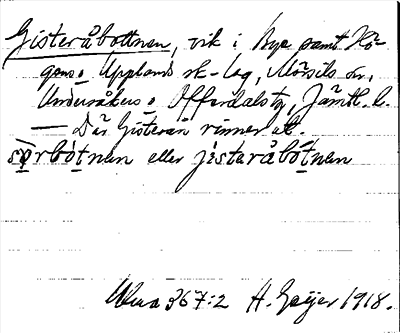 Gisteråbottnen, vik i Bye samt Hö-
gens Upplands sk-lag, Mörsils sn,
Undersåkers o Offerdals tg, Jämtl. l.
— Där Gisterån rinner ut.
sörbótnen eller jisteråbótnen
367:2 H. Geijer 1918.